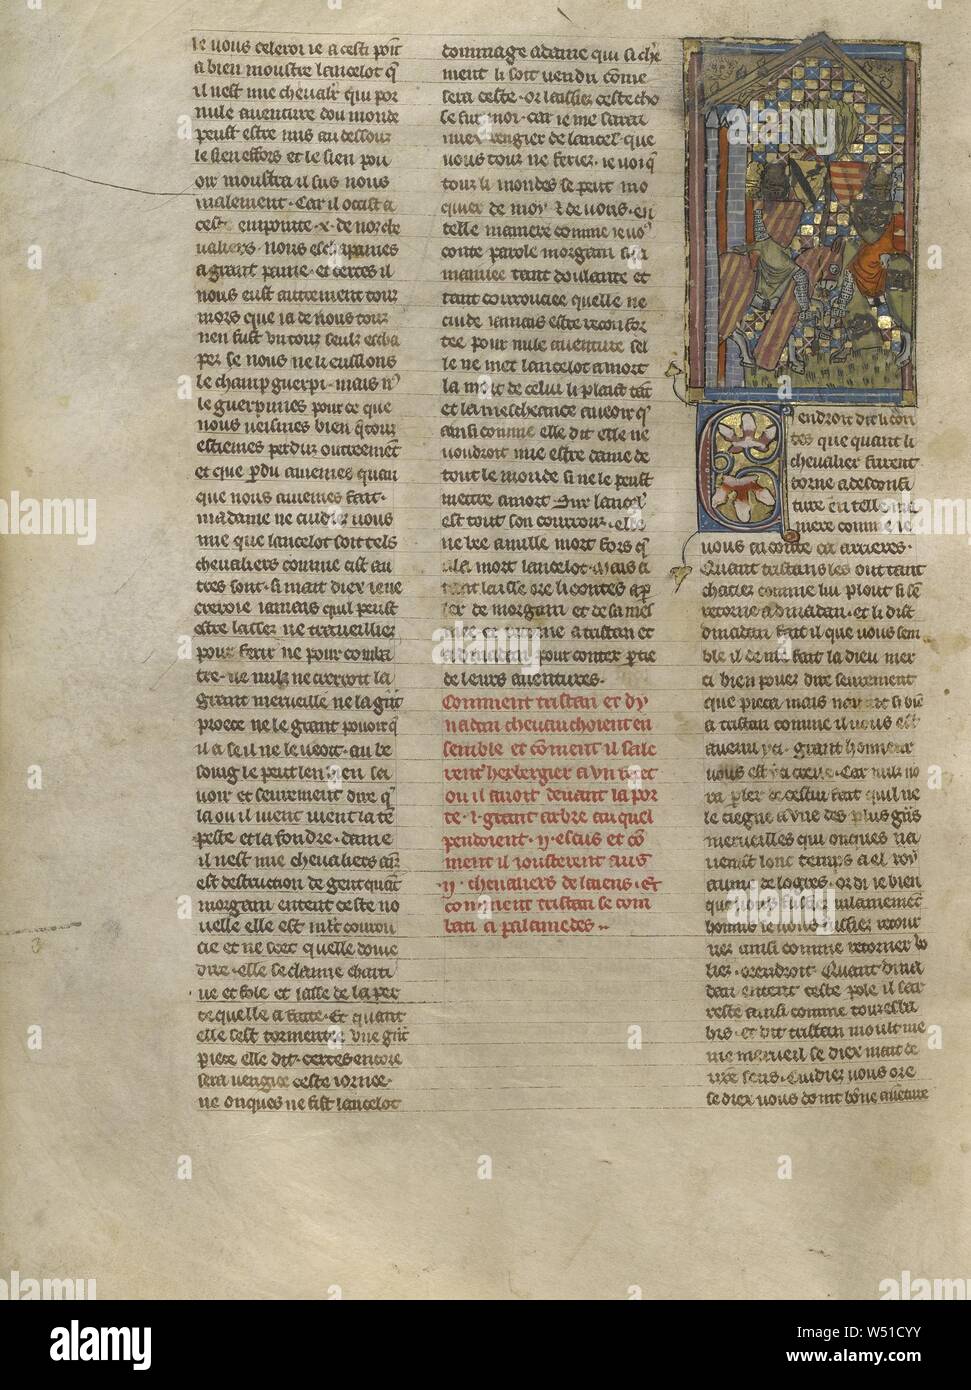 le uous celeroi ie a cesti point
a bien moustre lancelot q̄
il nest nue cheualr̄ qui por
nule auenture dou monde
peust estre mis au dessour
le sien effors et le sien pou
oir moustra il sus nous
malement · Car il ocist a
ceste empointe · x · de nor che
ualiers · nous eschapames
a grant paine · et certes il
nous eust autrement tour
mors que ia de nous tour
nen fust un tour seulr escha
per se nous ne li eussions
le champ guerpi · mais n9
le guerpimes pour ce que
nous ueismes bien q̄ tour
estiemes perdus outreement
et que p̄du auiemes quan
que nous auiemes fait ·
madame ne cuidiez uous
mie que lancelot soit tels
cheualiers comme cist au
tres sont · si mait diex ie ne
creroie iamais quil peust
estre lasser ne trauueillier
pour ferir ne pour comba
tre · ne nulz ne creroit la
grant merueille ne la gn̄t
proece ne le grant pouoir q̄
il a se il ne le ueoit · au be
soing le peut len bien sa
uoir et seurement dire q̄
la ou il uient uient la tē
peste et la foudre · dame
il nest mie cheualiers ains
est destruction de gent quāt
morgain entent ceste no
uelle elle est m̄lt courou
cie et ne scet quelle doiue
dire · elle se claime chaiti
ue et fole et lasse de la per
te quelle a faite · Et quant
elle sest tormentee une gn̄t
piece elle dit · certes encore
sera uengie ceste iornee ·
ne onques ne fist lancelot
dommage a dame qui si ch̄r
ment li soit uendu cōme
sera ceste · or laissiez ceste cho
se sur moi · car ie me sarai
miex uengier de lancel̄ que
uous tour ne feriez · ie uoi q̄
tour li mondes se peut mo
quier de moy & de uous · en
telle maniere comme ie uo9
conte parole morgain si a
maniee tant doulante et
tant courouciee quelle ne
cuide iamais estre reconfor
tee pour nule auenture sel
le ne met lancelot a mort
la mort de celui li plaist tāt
et la mescheance aueoir q̄
ainsi comme elle dit elle ne
uoudroit mie estre dame de
tout le monde si ne le peust
mettre a mort · Sur lancel̄
est tout son courrour · elle
ne bee a nulle mort fors q̄
a la mort lancelot · Mais a
tant laisse ore li contes a p̄
ler de morgain et de sa mes
niee et retorne a tristan et
a dinadan pour conter p̄tie
de leurs auentures ·
Comment tristan et dy
nadan cheuauchoient en
semble et cōment il sale
rent herbergier a un recet
ou il auoit deuant la por
te · i · grant arbre auquel
pendoient · ij · escus et cō
ment il iousterent aus
· ij · cheualiers de laiens · Et
cōment tristan se com
bati a palamedes ··
alamy
Cendroit dit li con
tes que quant li
cheualier furent
torne a desconfi
ture en telle ma
niere comme ie
uous ai conte ca arrieres ·
Quant tristans les ont tant
chacier comme lui plout si sē
retorne a dinadan · et li dist
dinadan fait il que uous sem
ble il de me fait la dieu mer
ci bien pouez dire seurement
que pieca mais nauint si biē
a tristan comme il uous est
auenu ya · grant honneur
uous est ya creue · Car nulz no
ra p̄ler de cestui fait quil ne
le tiegne a une des plus gn̄s
merueilles qui onques na
uenist lonc temps a el roy
aume de logres · or di ie bien
que nous fussiez uilainemēt
honnis se nous fussiez retour
nez ainsi comme retorner uo
liez · orendroit · Quant dina
dan entent ceste pole il sar
reste ainsi comme tour esba
his · et dit tristan moult me
me merueil se diex mait de
ur̄e sens · Cuidiez uous ore
se diex uous doint bōne auenture
alamy
alamy
alamy
W51CYY
www.alamy.com